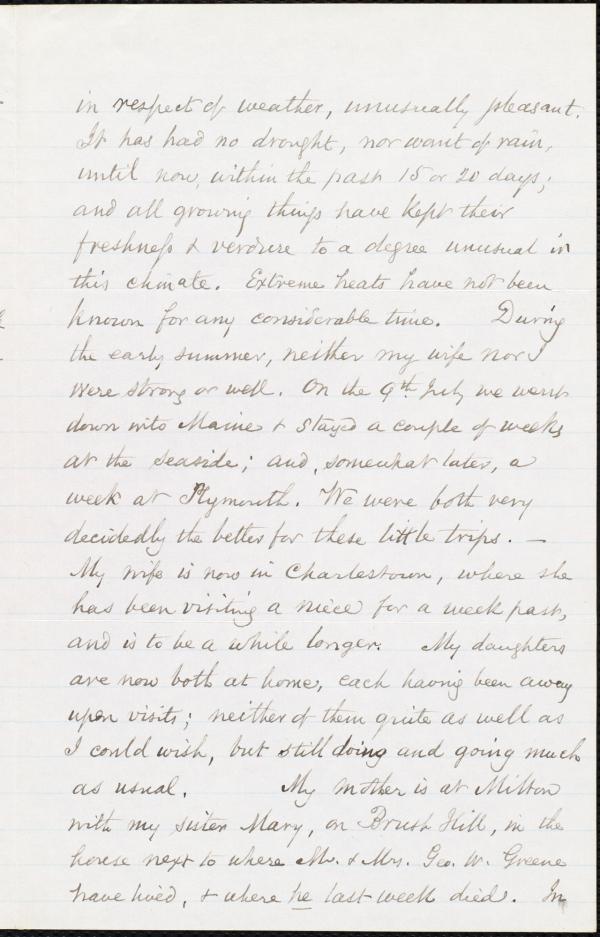 in respect of weather, unusually pleasant.
It has had no drought, nor want of rain,
until now, within the past 15 or 20 days;
and all growing things have kept their
freshness & verdure to a degree unusual in
this climate. Extreme heats have not been
known for any considerable time. During
the early summer, neither my wife nor I
were strong or well. On the 9th July we went
down into Maine & stayed a couple of weeks
at the seaside; and, somewhat later, a
week at Plymouth. We were both very
decidedly the better for these little trips. —
My wife is now in Charlestown, where she
has been visiting a niece for a week past,
and is to be a while longer. My daughters
are now both at home, each having been away
upon visits; neither of them quite as well as
I could wish, but still doing and going much
as usual. My mother is at Milton
with my sister Mary, on Brush Hill, in the
house next to where Mr. & Mrs. Geo. W. Greene
have lived, & where he last week died. In